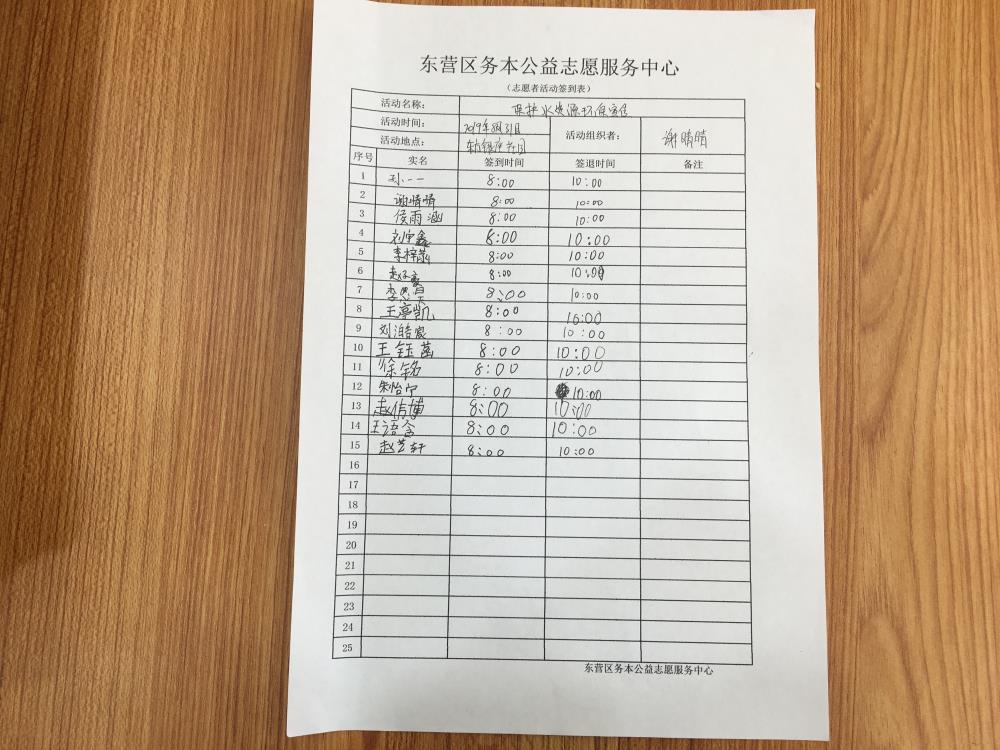 东营区务本公益志愿服务中心
（志愿者活动签到表）
活动名称： 保护水资源环保宣传
活动时间： 2019年8月31日 活动组织者： 谢晴晴
活动地点：
序号 实名 签到时间 签退时间 备注
1 孙一一 8:00 10:00
2 谢晴晴 8:00 10:00
3 侯雨涵 8:00 10:00
4 刘宇鑫 8:00 10:00
5 李梓菡 8:00 10:00
6 赵子豪 8:00 10:00
7 8:00 10:00
8 王享凯 8:00 10:00
9 刘浩宸 8:00 10:00
10 王钰菡 8:00 10:00
11 徐铭 8:00 10:00
12 朱怡宁 8:00 10:00
13 赵信博 8:00 10:00
14 王语含 8:00 10:00
15 赵芸轩 8:00 10:00
16
17
18
19
20
21
22
23
24
25
东营区务本公益志愿服务中心